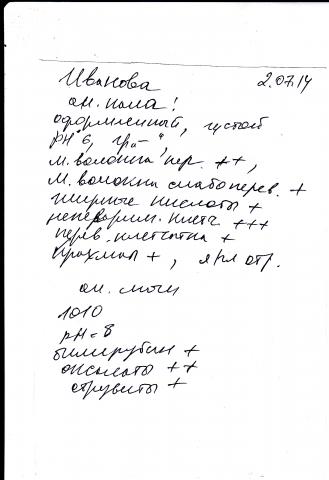 Иванова 2.07.14
ан. кала!
оформленный, густой
pH 6, гр "–",
м. волокна пер. ++,
м. волокна слабоперев. +
жирные кислоты +
неперевар. клетч +++
перев. клетчатка +
крахмал +, я/гл отр.
ан. мочи
1010
pH = 8
билирубин +
оксалаты ++
струвиты +